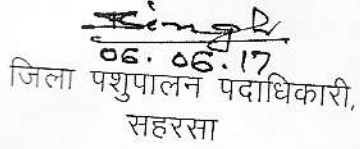 06.06.17
जिला पशुपालन पदाधिकारी,
सहरसा